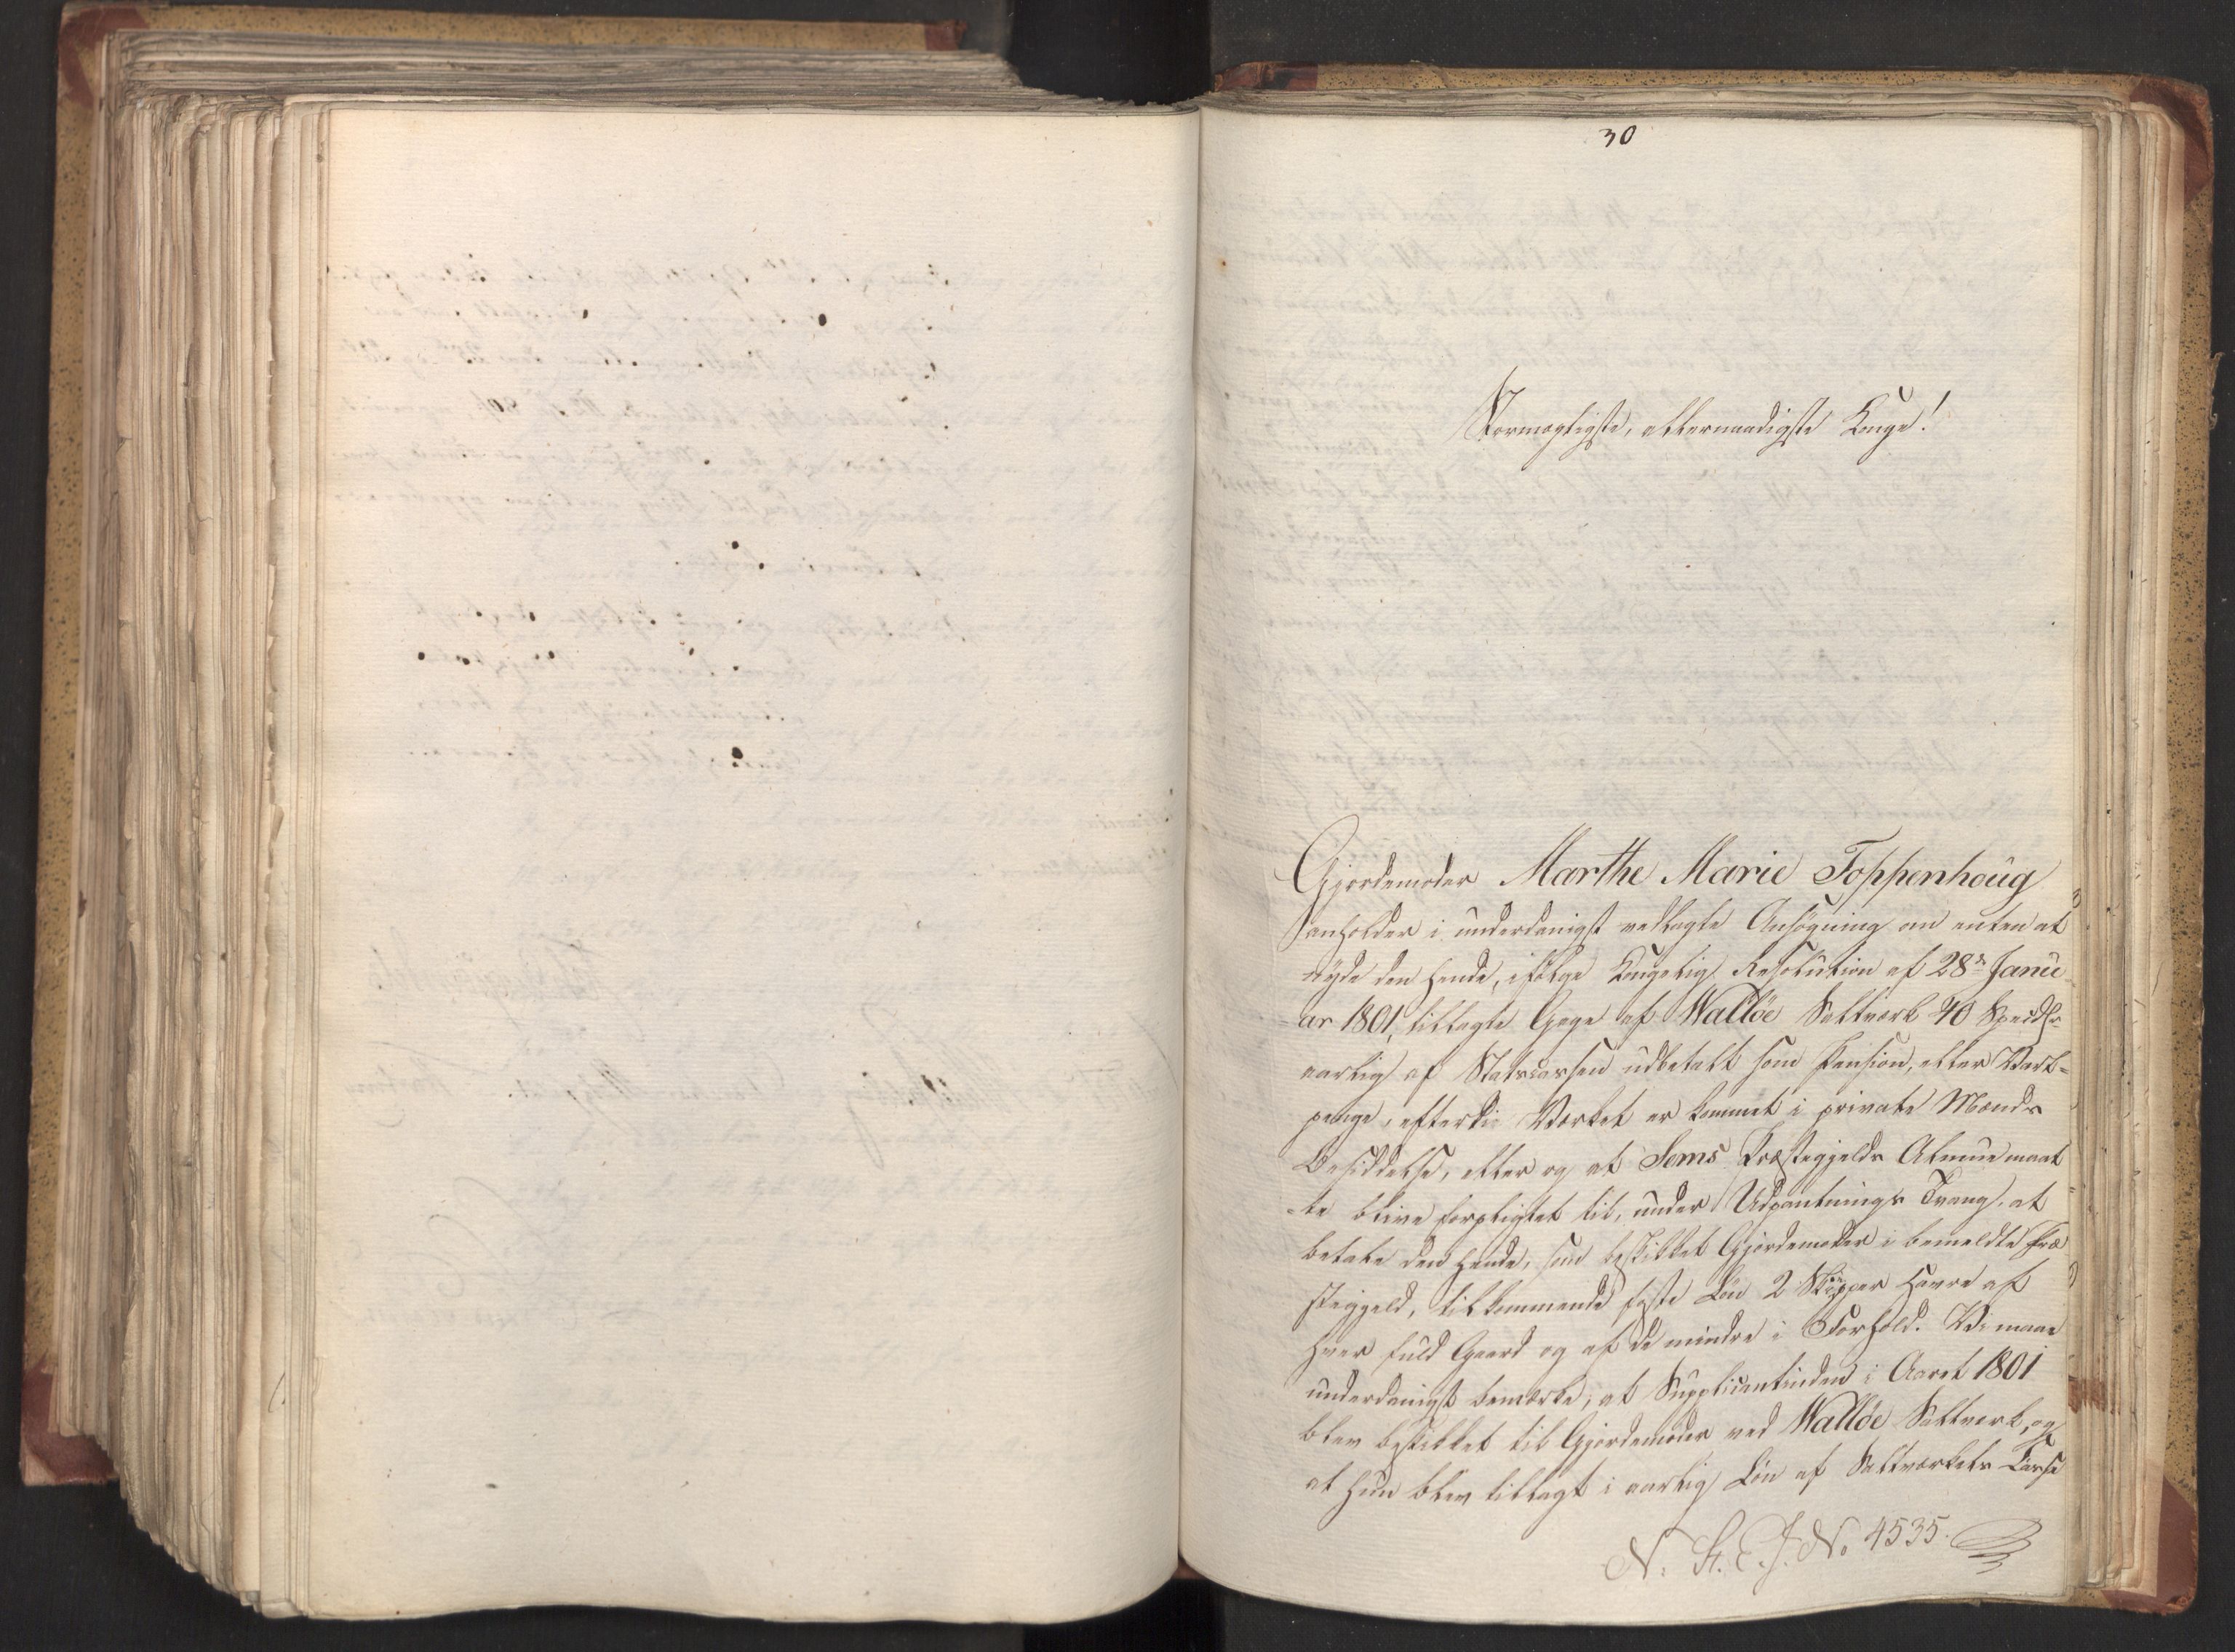 30
Stormægtigste, allernaadigste Konge!
Gjordemoder Marthe Marie Toppenhoug
anholder i underdanigst vedlagte Ansøgning om enten at
nyde den hende, ifølge Kongelig Resolution af 28de Janu
ar 1801, tillagte Gage af Walløe Saltværk 40 Specdlr
aarlig af Statscassen udbetalt som Pension, eller Vart-
penge, efterdi Værket er kommet i private Mænds
Besiddelse, eller og at Sems Præstegjelds Almue maat
-te blive forpligtet til, under Udpantnings Tvang, at
betale den hende, som beskikket Gjordemoder i bemeldte Præ
stegjeld, tilkommende faste Løn 2 Skipper Havre af
hver fuld Gaard og af de mindre i Forhold. Vi maae
underdanigst bemærke, at Supplicantinden i Aaret 1801
blev beskikket til Gjordemoder ved Walløe Saltværk, og
at hun blev tillagt i aarlig Løn af Saltværkets Casse
N. St. E. J. No 4535.